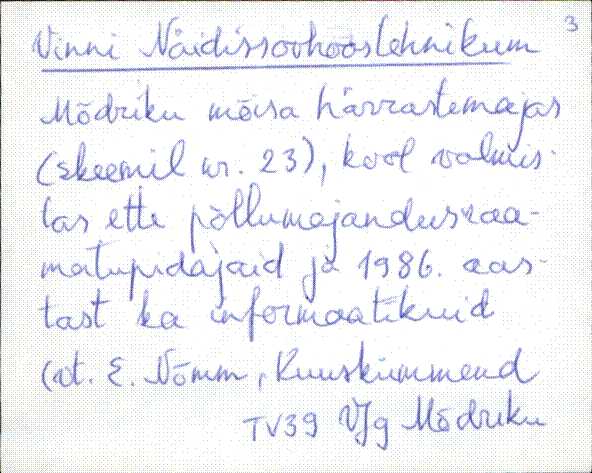 3
Vinni Näidissovhoostehnikum
Mõdriku mõisa härrastemajas
(skeemil nr. 23), kool valmis-
tas ette põllumajandusraa-
matupidajaid ja 1986. aas-
tast ka informaatikuid
(vt. E. Nõmm, Kuuskümmend
TV39 VJg Mõdriku